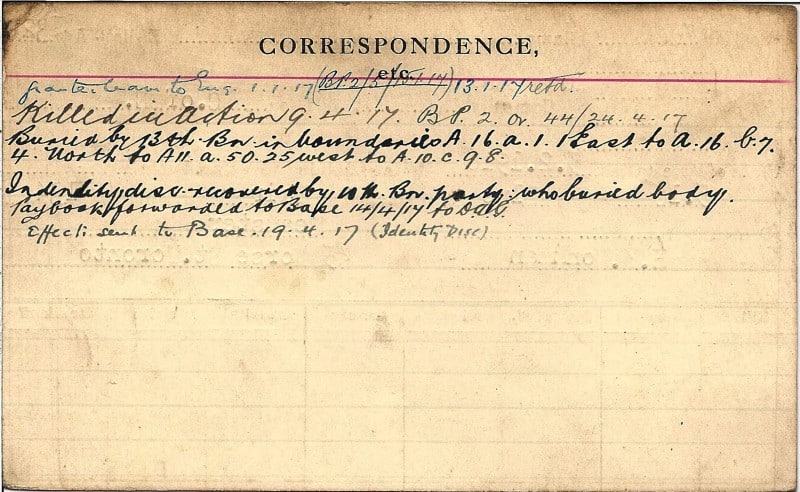 CORRESPONDENCE,
etc.
grante leave to Eng. 1.1.17 (B.P. 2/5/13-1-17) 13.1.17 retd.
Killed in action 9.4.17. B P. 2. or. 44/24.4.17
Buried by 13th Bn. in boundaries A.16.a.1.1 East to A.16.b.7.
4. North to A11.a.50.25 west to A.10.c.9.8.
Indendity disc recovered by 10th. Bn. party: who buried body.
Paybook forwarded to Base 14/4/17 to
Effects sent to Base. 19.4.17 (Identity Disc)